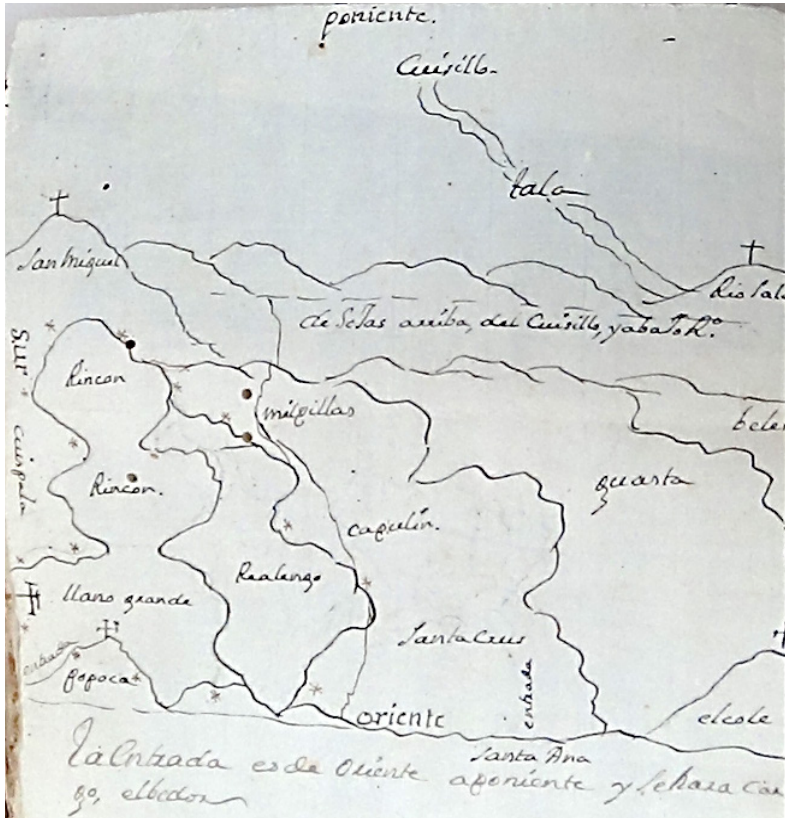 poniente.
Cuisillo.
tala
San Miguel
Rio Sala
de Setas arriba, del Cuisillo, y abajo Ro.
Sur
Rincon
milpillas
bele
cuispala
quarta
Rincon.
capulin.
Realengo
llano grande
Santa Crus
entrada
entrada
popoca
oriente
elcole
Santa Ana
La Entrada es de Oriente aponiente y Sehara Car
go, elbedor